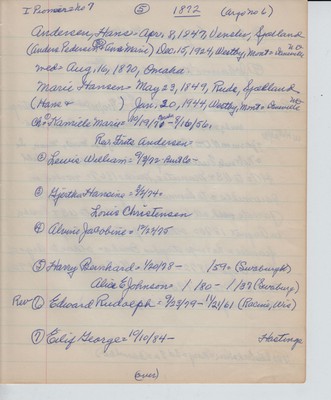 I Promenske 7 ⑤ 1872 (Argo No 6)
Andersen, Hans = Apr. 8, 1847, Vensler, Sjælland
(Anders Pedersen & Ane Marie) Dec. 15, 1924, Westby, Mont =
wed = Aug. 16, 1870, Omaha
Marie Hansen = May 23, 1849, Ruds, Sjælland
(Hans & ) Jan. 20, 1944, Westby, Mont =
Ch ① Kamille Marie = 10/19/70 - 8/16/56,
Ras. Fritz Andersen
② Lewis William = 9/9/72 -
③ Gjertha Hansine = 3/4/74 =
Louis Christensen
④ Alvine Jacobine = 12/24/75
⑤ Harry Bernhard = 4/20/78 - /59 = (Swaburgh)
Alice E Johnson = / 80 - 1/37 (Swaburg)
Rev ⑥ Edward Rudolph = 9/23/79 - 11/21/61 (Racine, Wis)
⑦ Eilif George = 10/10/84 - Hastings
(over)